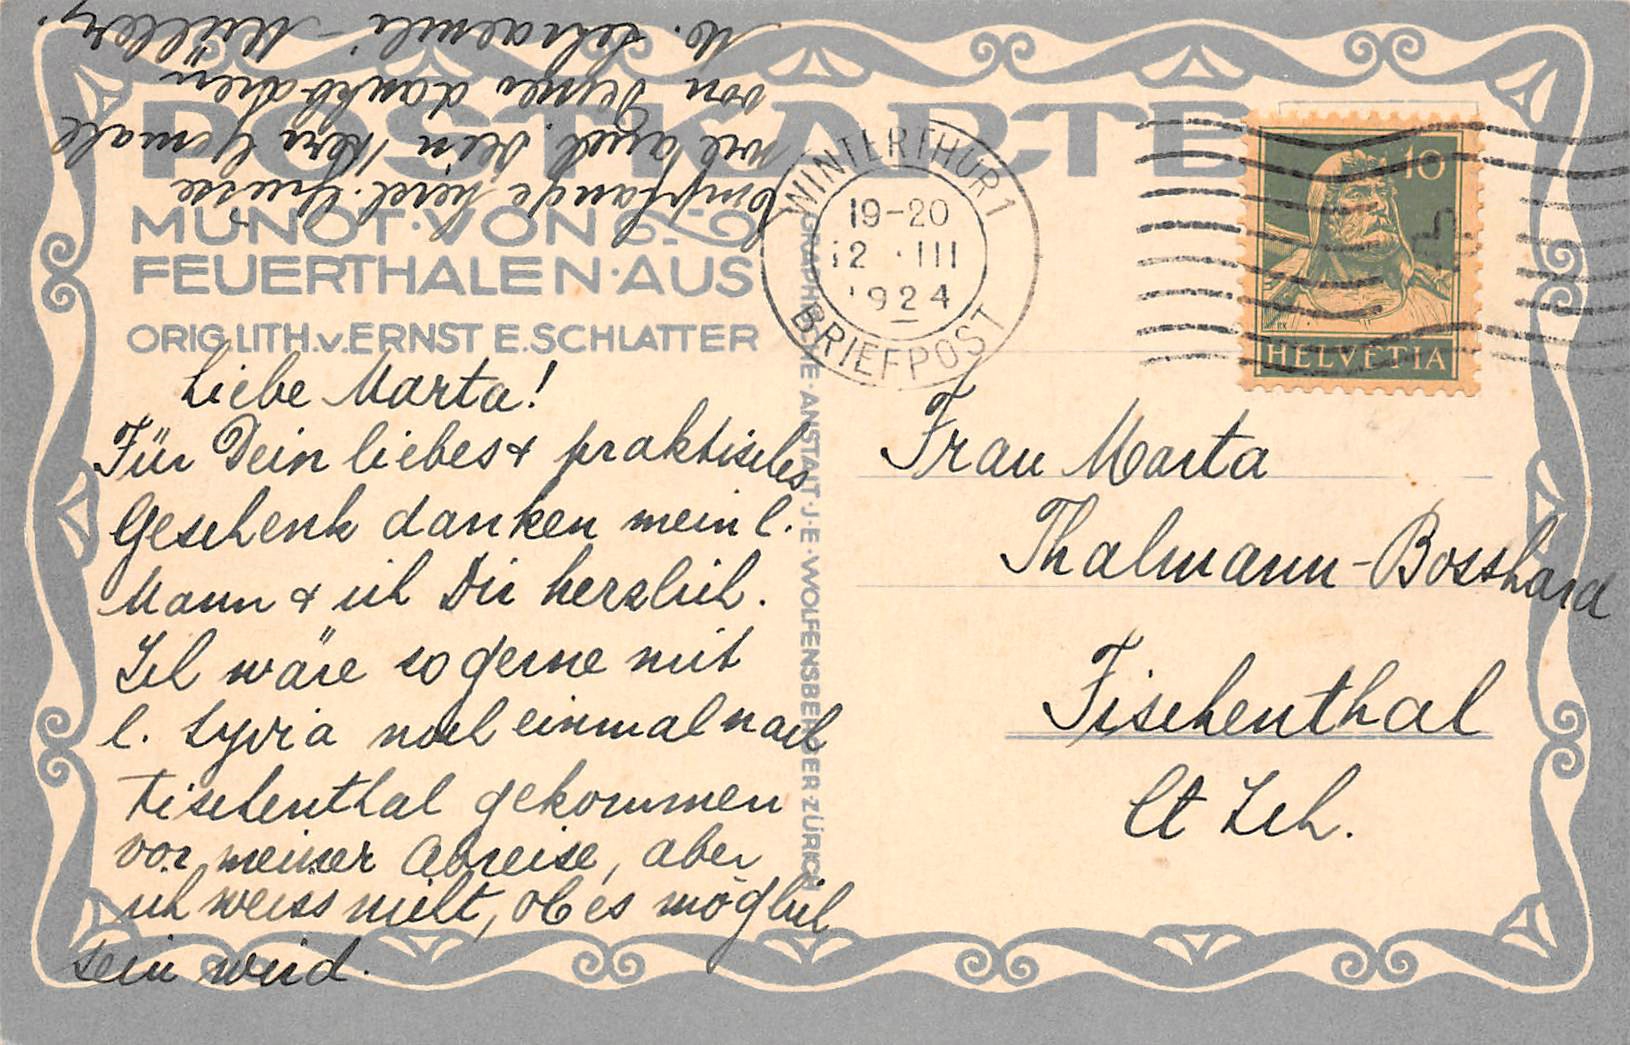 POSTKARTE
MUNOT·VON
FEUERTHALEN·AUS
ORIG.LITH.v.ERNST E.SCHLATTER
GRAPHISCHE·ANSTALT·J·E·WOLFENSBERGER·ZÜRICH
WINTERTHUR 1
19-20
12 · III
1924
BRIEFPOST
10
HELVETIA
Liebe Marta!
Für Dein liebes & praktisches
Geschenk danken mein l.
Mann & ich Dir herzlich.
Ich wäre so gerne mit
l. Sylvia noch einmal nach
Fischenthal gekommen
vor meiner Abreise, aber
ich weiss nicht, ob es möglich
sein wird.
Empfange herzl. Grüsse
wie auch Dein Herr Gemahl
von Deiner dankbaren
M. Müller
Frau Marta
Thalmann-Bosshard
Fischenthal
Ct Zch.